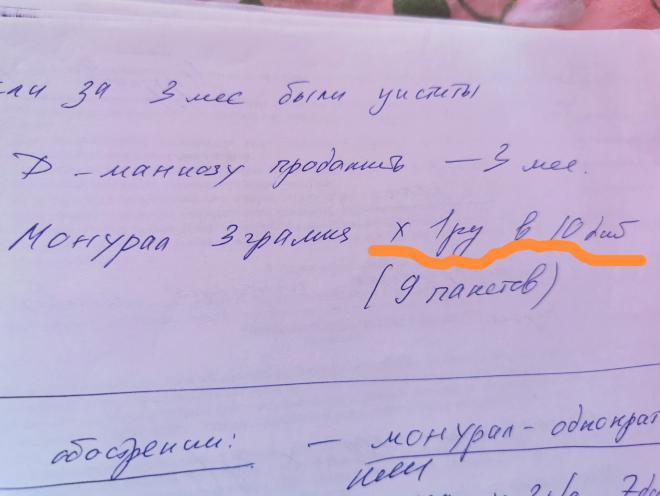 ли за 3 мес были циститы
D - маннозу продолжить - 3 мес.
Монурал 3 грамма x 1 ру в 10 дней
(9 пакетов)
обострении: - монурал - однократ
или